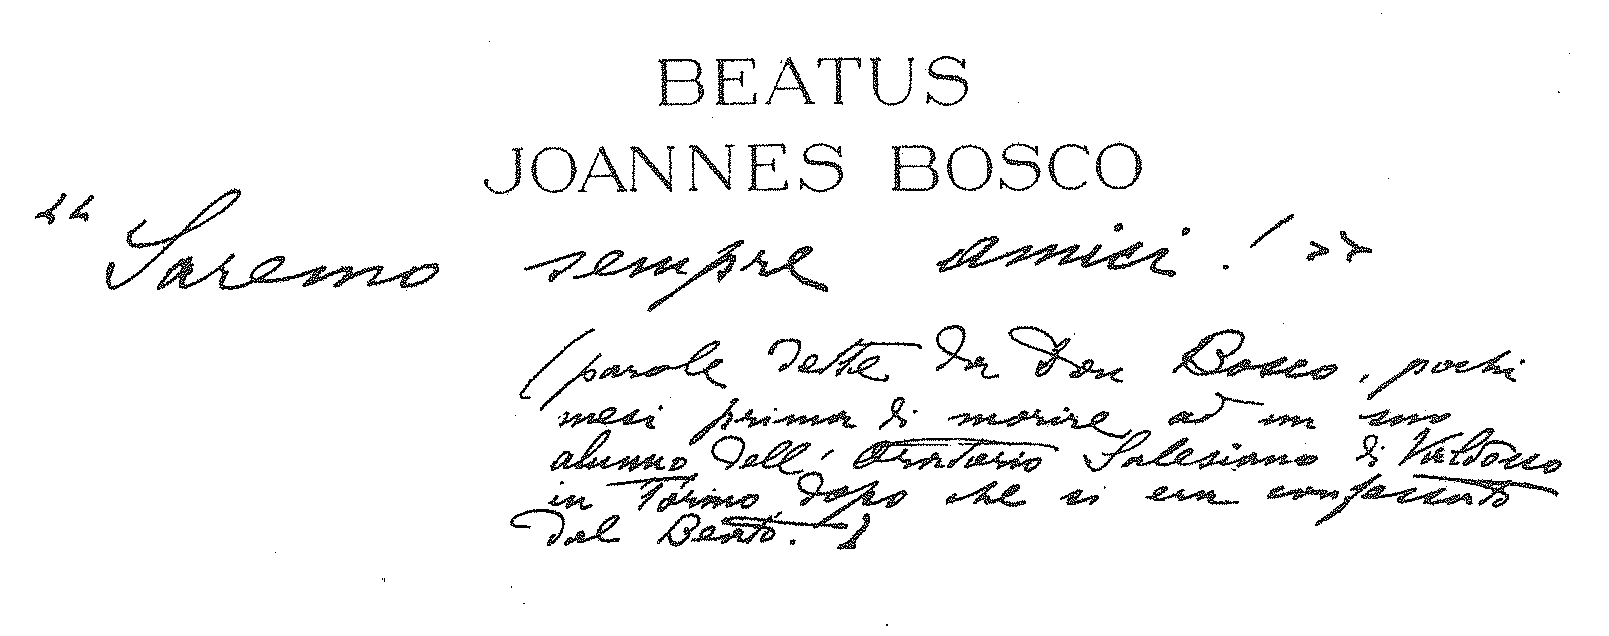 BEATUS
JOANNES BOSCO
"Saremo sempre amici!"
(parole dette da Don Bosco, pochi
mesi prima di morire, ad un suo
alunno dell'Oratorio Salesiano di Valdocco
in Torino, dopo che si era confessato
dal Beato.)